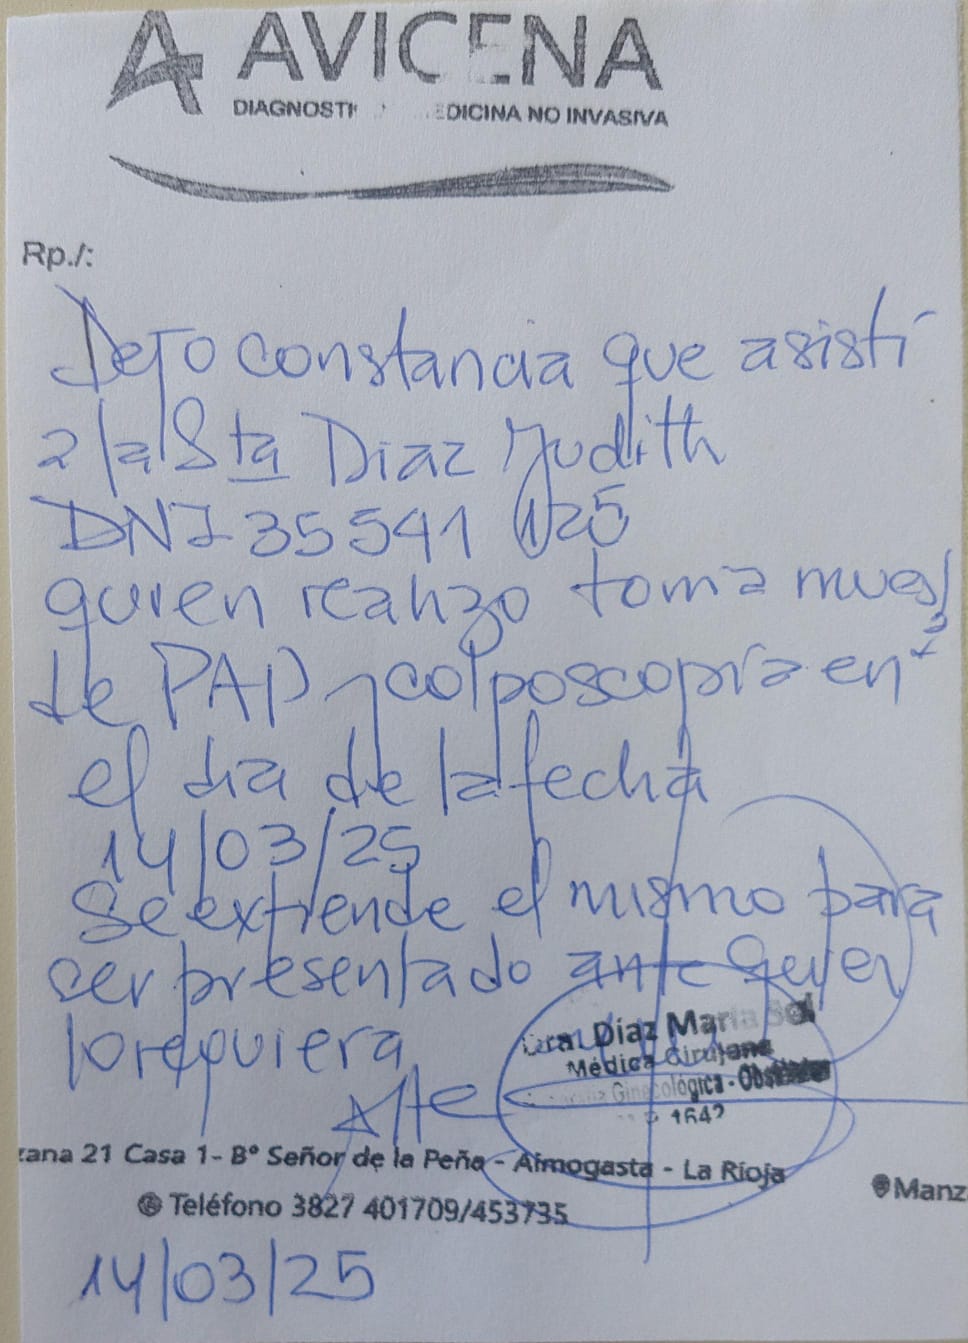 AVICENA
DIAGNOSTI EDICINA NO INVASIVA
Rp./:
Dejo constancia que asistí
a la Sta Diaz Judith
DNI 35541 125
quien realizo toma mues
tra
de PAP y colposcopía en
el dia de la fecha
14/03/25
Se extiende el mismo para
ser presentado ante quien
lo requiera
Atte
Dra. Díaz María Sol
Médica Cirujana
Ginecológica - Obs
1642
zana 21 Casa 1- B° Señor de la Peña - Aimogasta - La Rioja
Manz
Teléfono 3827 401709/453735
14/03/25